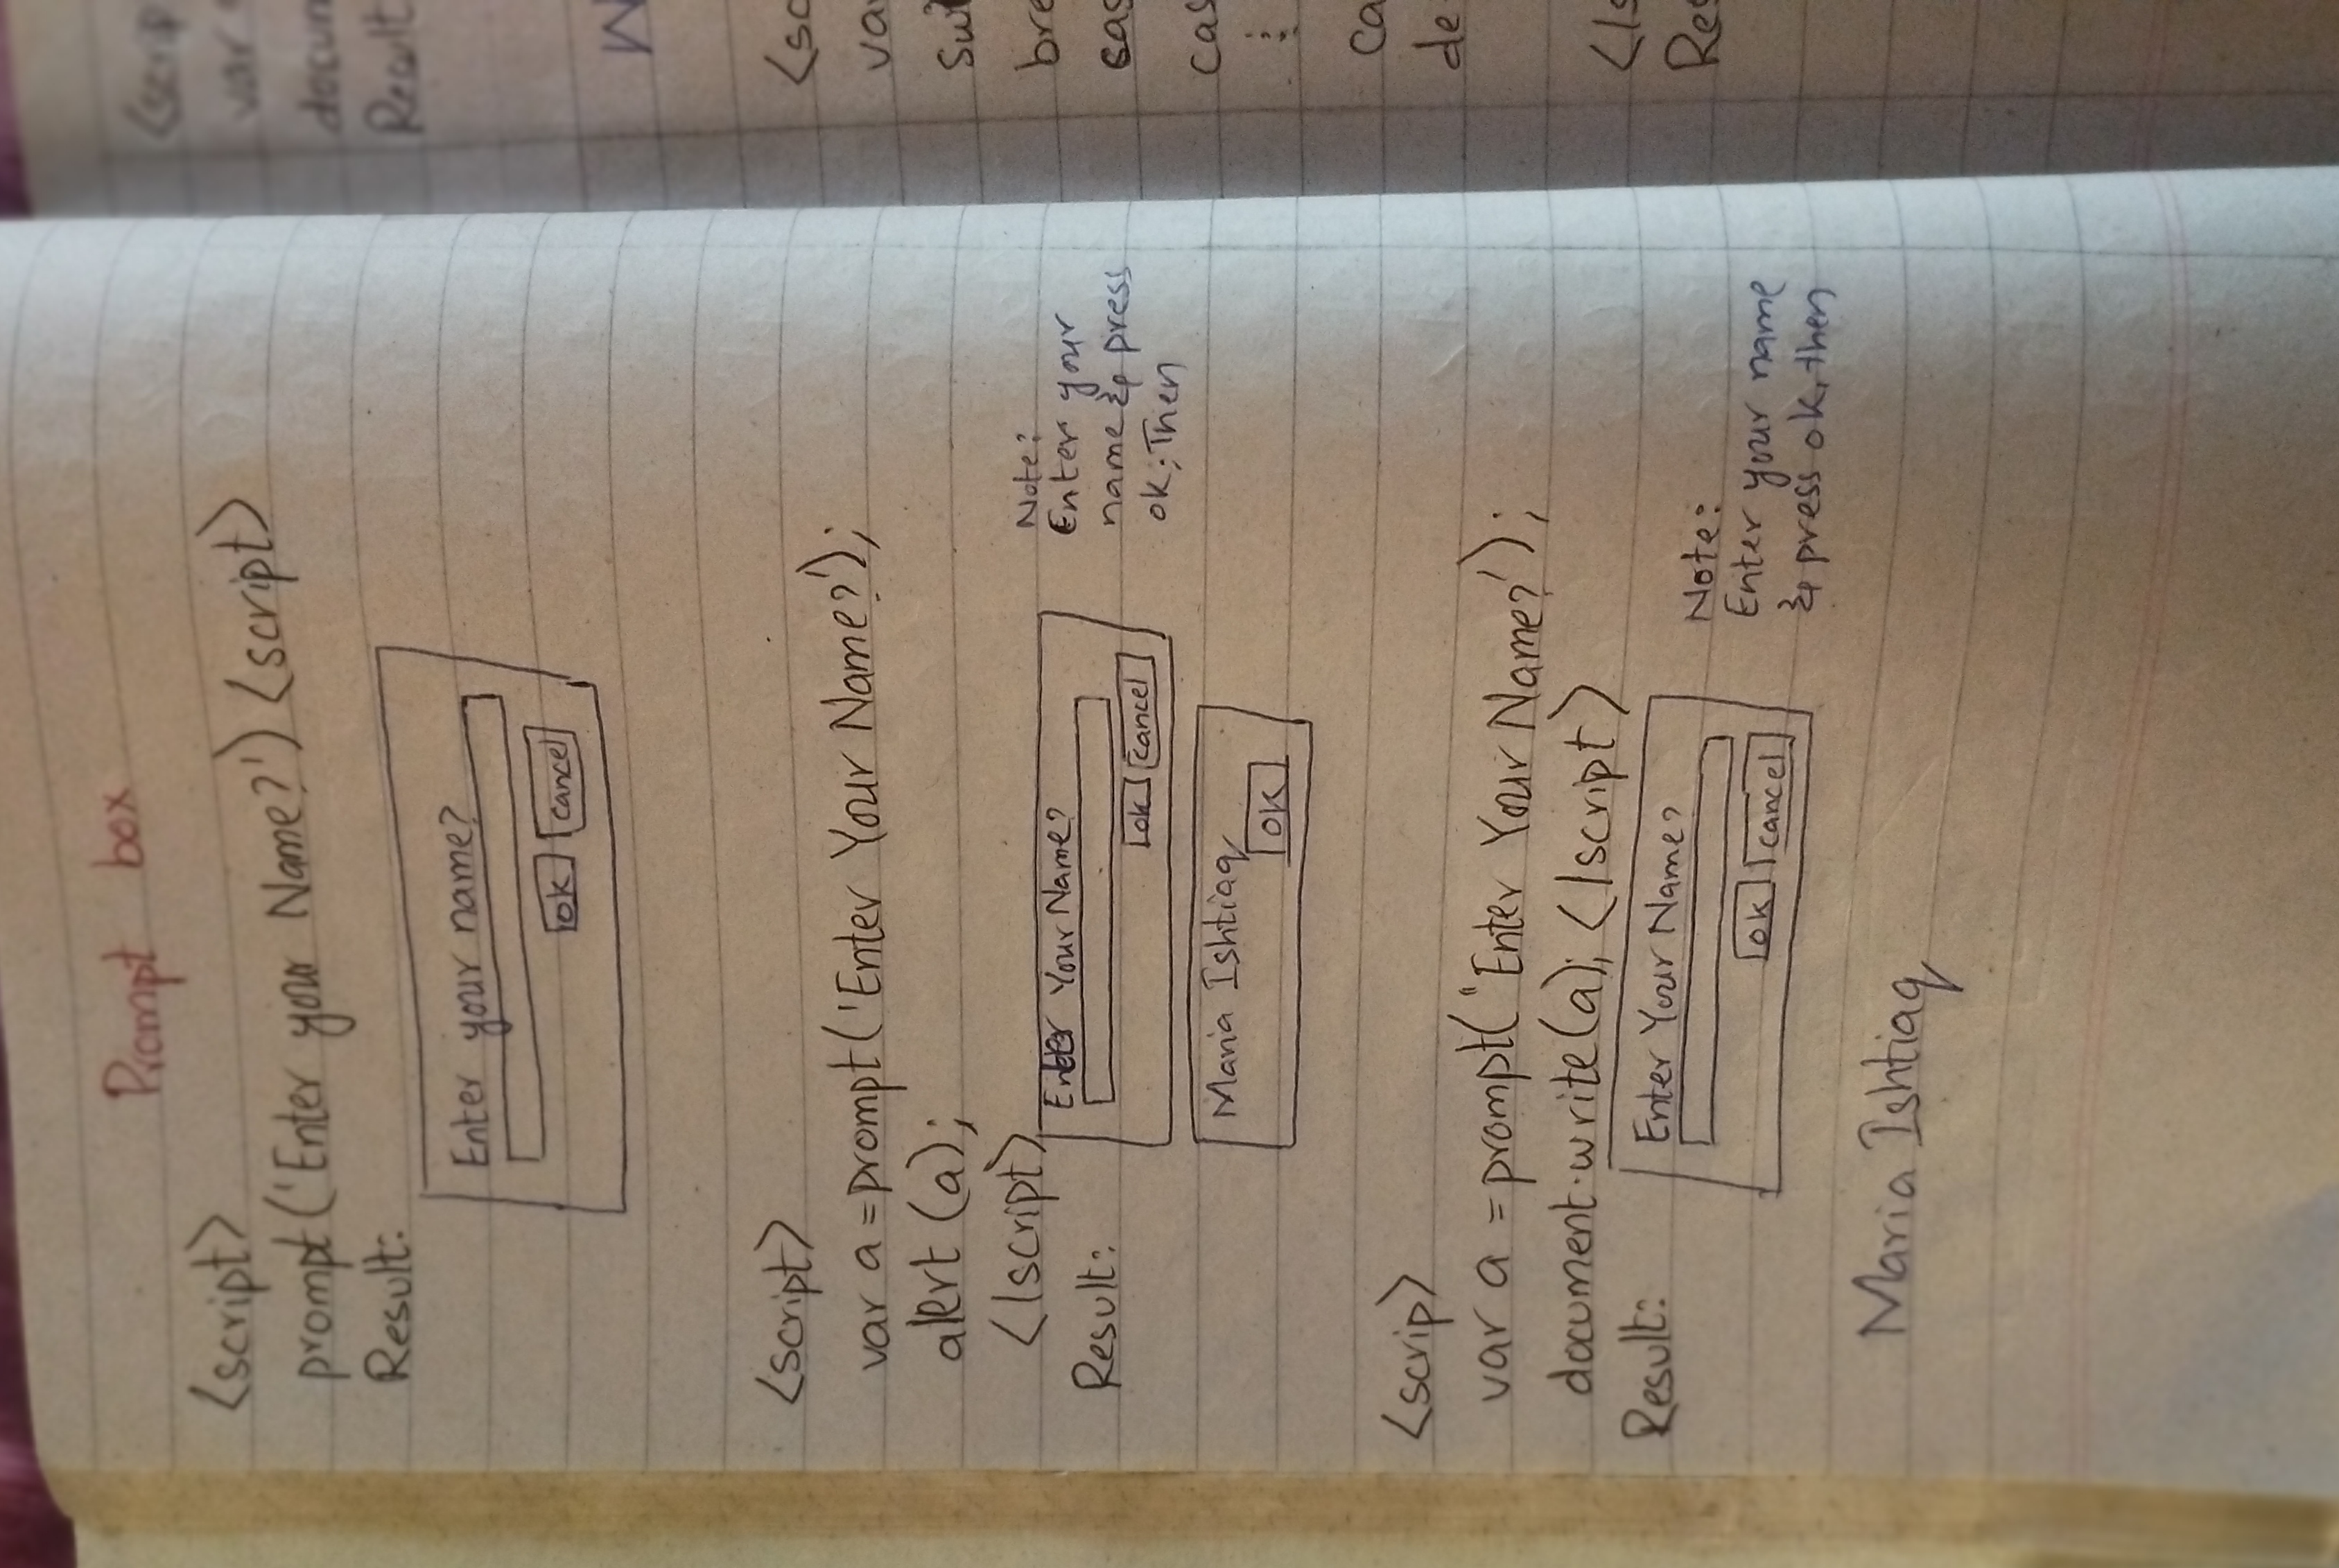 Prompt box
<script>
prompt('Enter your Name?') <script>
Result:
Enter your name?
ok cancel
<script>
var a = prompt('Enter Your Name?');
alert (a);
</script>
Result:
Enter Your Name?
ok cancel
Note:
Enter your
name & press
ok; Then
Maria Ishtiaq
ok
<scrip>
var a = prompt("Enter Your Name?');
document.write(a); </script>
Result:
Enter Your Name?
ok cancel
Note:
Enter your name
& press ok, then
Maria Ishtiaq
<scrip
var
docum
Result
<sc
va
bre
cas
cas
:
ca
de
</s
Res